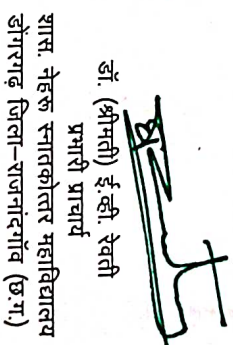 डॉ. (श्रीमती) ई.व्ही. रेवती
प्रभारी प्राचार्य
शास. नेहरू स्नातकोत्तर महाविद्यालय
डोंगरगढ़ जिला-राजनांदगाँव (छ.ग.)